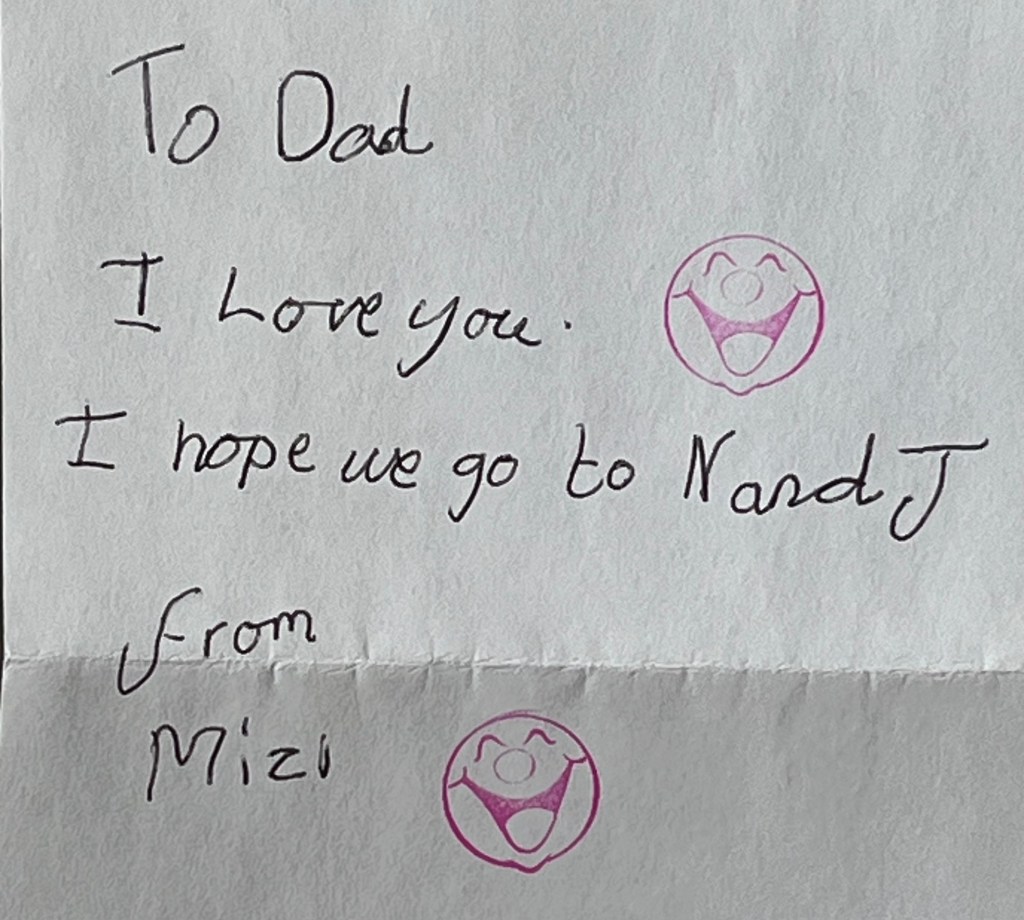 To Dad
I Love you.
I hope we go to N and J
from
Mizi